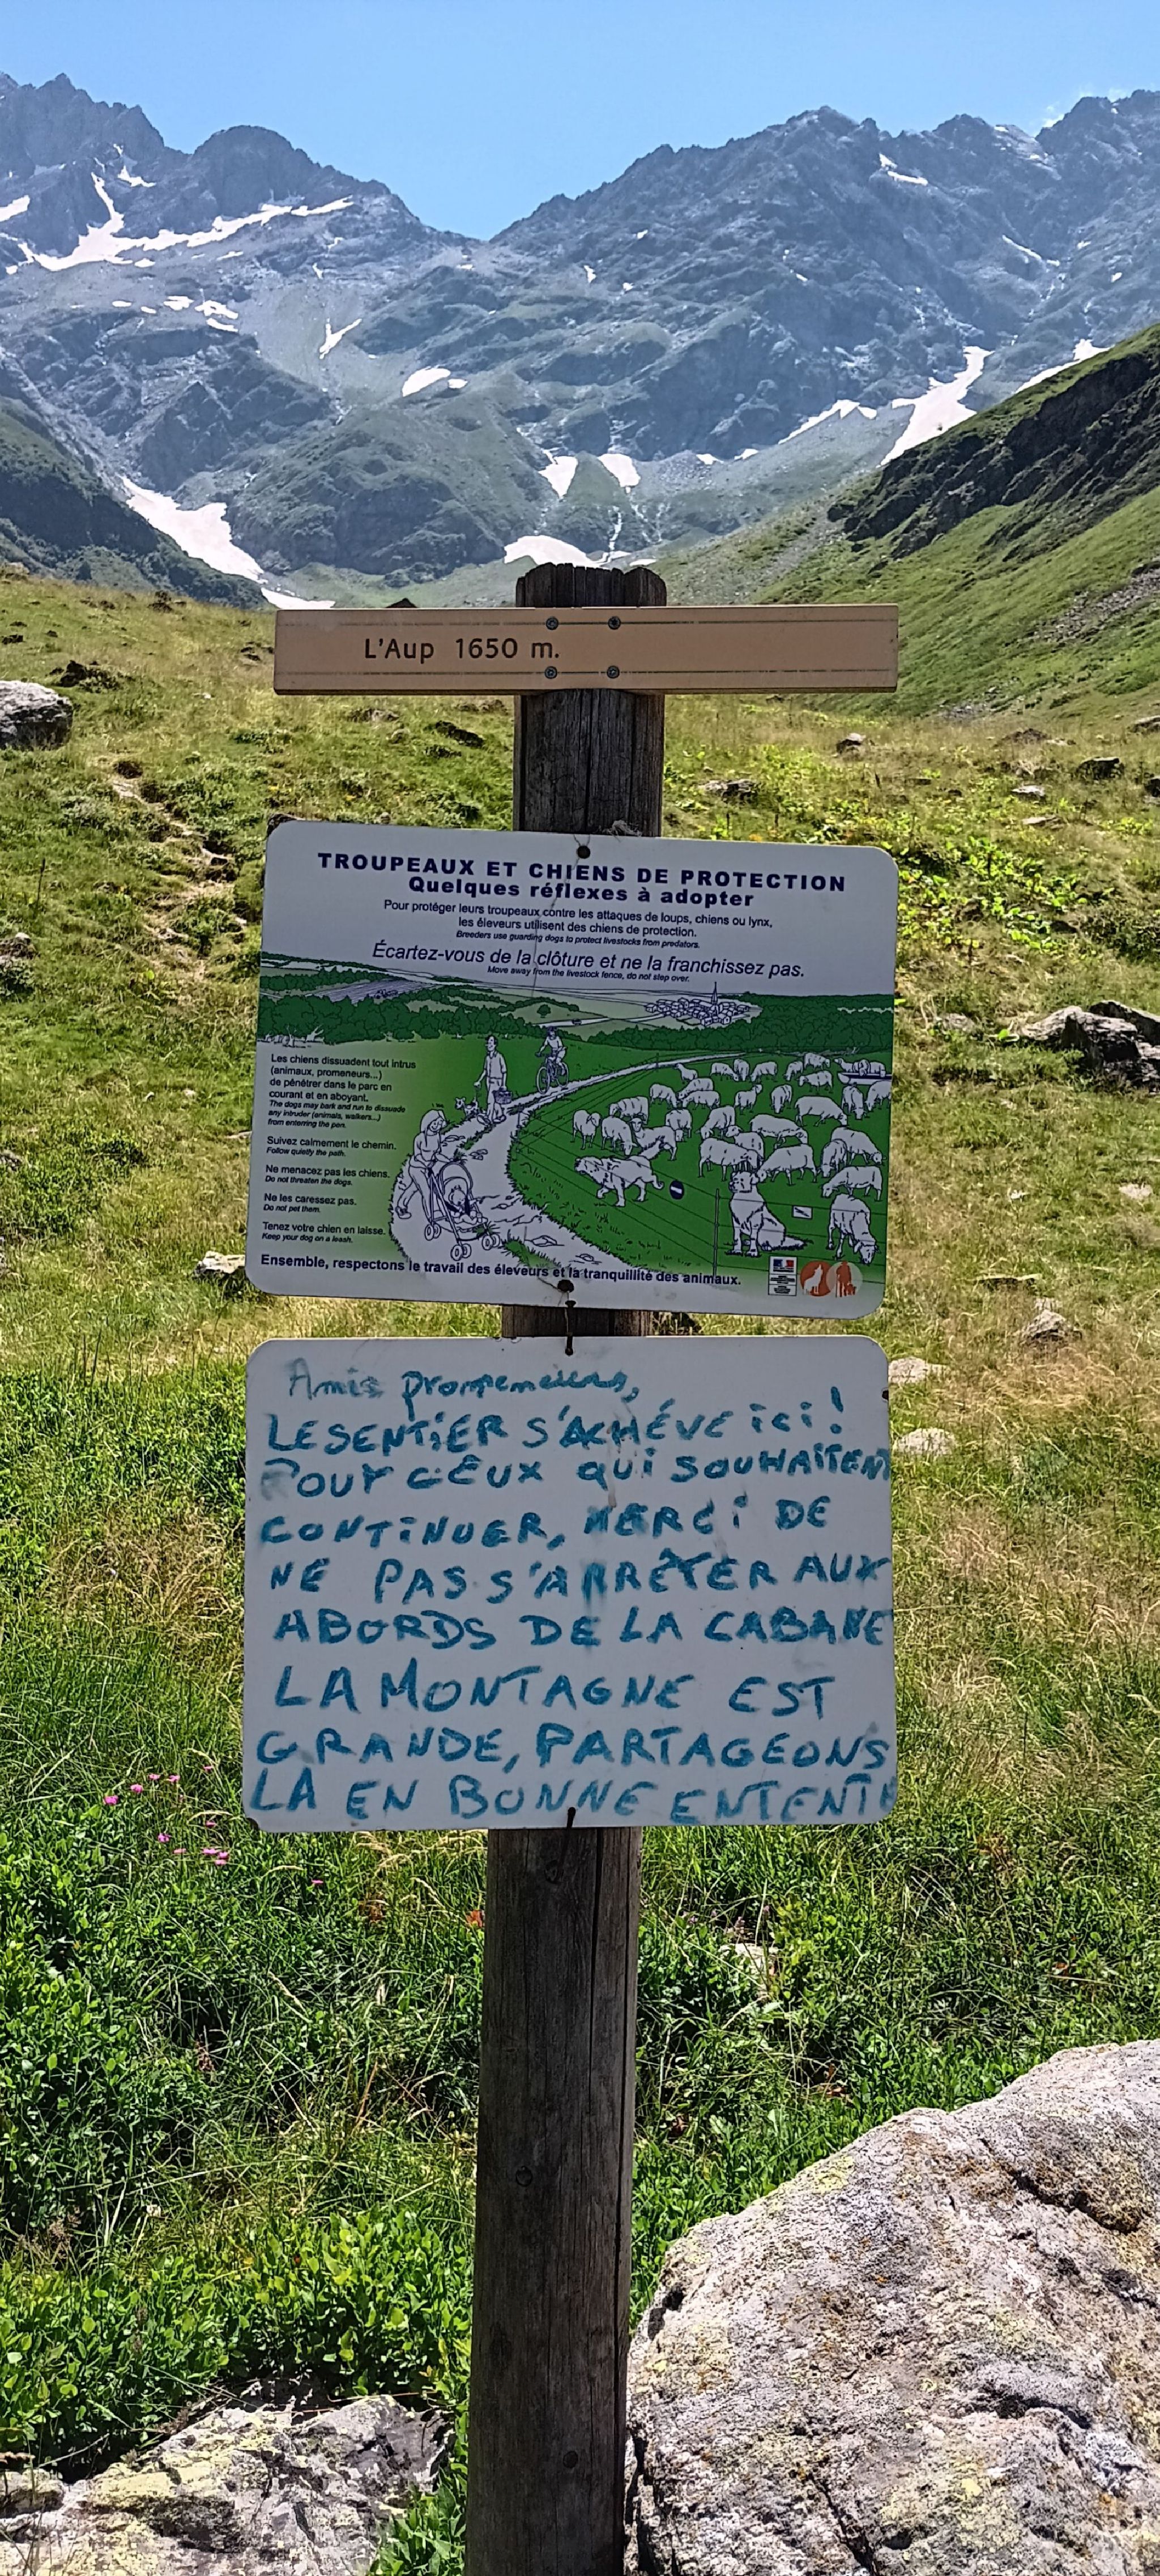 L'Aup 1650 m.
TROUPEAUX ET CHIENS DE PROTECTION
Quelques réflexes à adopter
Pour protéger leurs troupeaux contre les attaques de loups, chiens ou lynx,
les éleveurs utilisent des chiens de protection.
Breeders use guarding dogs to protect livestocks from predators.
Écartez-vous de la clôture et ne la franchissez pas.
Move away from the livestock fence, do not step over.
Les chiens dissuadent tout intrus
(animaux, promeneurs...)
de pénétrer dans le parc en
courant et en aboyant.
The dogs may bark and run to dissuade
any intruder (animals, walkers...)
from entering the pen.
Suivez calmement le chemin.
Follow quietly the path.
Ne menacez pas les chiens.
Do not threaten the dogs.
Ne les caressez pas.
Do not pet them.
Tenez votre chien en laisse.
Keep your dog on a leash.
Ensemble, respectons le travail des éleveurs et la tranquillité des animaux.
Amis promeneurs,
LE SENTIER S'ACHÉVE iCi !
POUR CEUX QUi SOUHAiTENT
CONTiNUER, MERCi DE
NE PAS S'ARRÊTER AUX
ABORDS DE LA CABANE
LA MONTAGNE EST
GRANDE, PARTAGEONS
LA EN BONNE ENTENTE